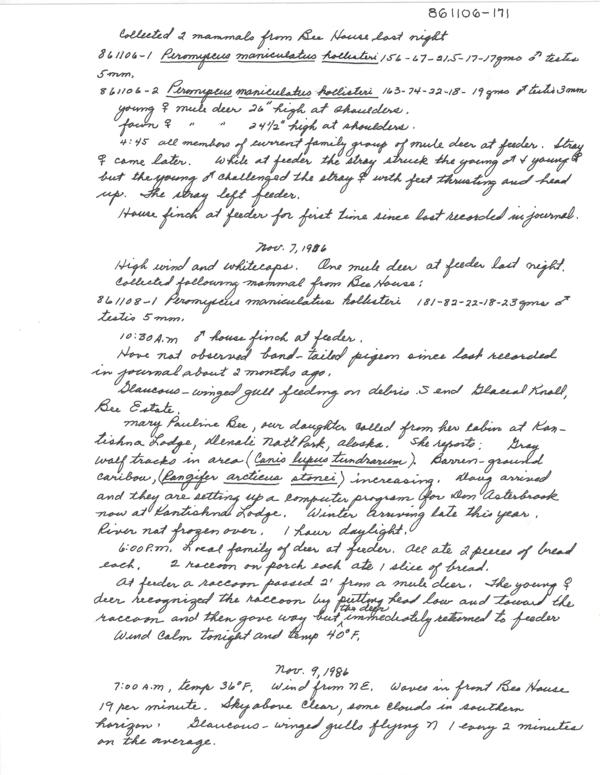 861106-171
Collected 2 mammals from Bee House last night
861106-1 Peromyscus maniculatus hollisteri 156-67-21.5-17-17gms ♂ testis
5mm.
861106-2 Peromyscus maniculatus hollisteri 163-74-22-18-19gms ♂ testis 3mm
young ♀ mule deer 26" high at shoulders.
fawn ♀ " " 24½" high at shoulders.
4:45 all members of current family group of mule deer at feeder. Stray
♀ came later. While at feeder the stray struck the young ♂ & young ♀
but the young ♂ challenged the stray ♀ with feet thrusting and head
up. The stray left feeder.
House finch at feeder for first time since last recorded in journal.
Nov. 7, 1986
High wind and whitecaps. One mule deer at feeder last night.
Collected following mammal from Bee House:
861108-1 Peromyscus maniculatus hollisteri 181-82-22-18-23gms ♂
testis 5mm.
10:30 A.m ♂ house finch at feeder.
Have not observed band-tailed pigeon since last recorded
in journal about 2 months ago.
Glaucous-winged gull feeding on debris S end Glacial Knoll,
Bee Estate.
Mary Pauline Bee, our daughter called from her cabin at Kan-
tishna Lodge, Denali Nat'l Park, Alaska. She reports: Gray
wolf tracks in area (Canis lupus tundrarum). Barren-ground
caribou, (Rangifer arcticus stonei) increasing. Doug arrived
and they are setting up a computer program for Don Asterbrook
now at Kantishna Lodge. Winter arriving late this year.
River not frozen over. 1 hour daylight.
6:00 P.m. Local family of deer at feeder. All ate 2 pieces of bread
each. 2 raccoon on porch each ate 1 slice of bread.
At feeder a raccoon passed 2' from a mule deer. The young ♀
deer recognized the raccoon by putting head low and toward the
raccoon and then gave way but the deer immediately returned to feeder
Wind calm tonight and temp 40°F.
Nov. 9, 1986
7:00 A.m, temp 36°F. Wind from NE. Waves in front Bee House
19 per minute. Sky above clear, some clouds in southern
horizon. Glaucous-winged gulls flying N 1 every 2 minutes
on the average.